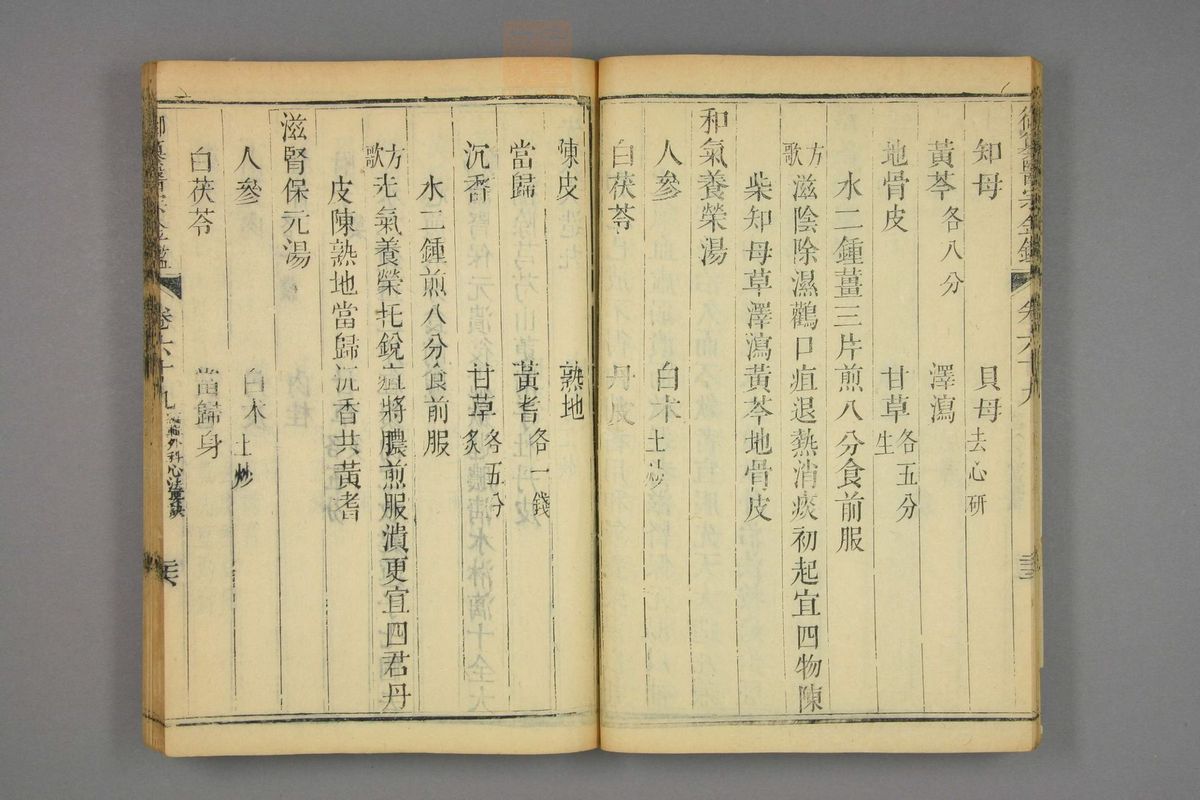 御纂醫宗金鑑 卷六十九
知母 貝母去心研
黃芩各八分 澤瀉
地骨皮 甘草生各五分
水二鍾薑三片煎八分食前服
方歌 滋陰除濕鸛口疽退熱消痰初起宜四物陳
柴知母草澤瀉黃芩地骨皮
和氣養榮湯
人參 白朮土炒
白茯苓 丹皮
陳皮 熟地
當歸 黃耆各一錢
沉香 甘草炙各五分
水二鍾煎八分食前服
方歌 先氣養榮托銳疽將膿煎服潰更宜四君丹
皮陳熟地當歸沉香共黃耆
滋腎保元湯
人參 白朮土炒
白茯苓 當歸身
御纂醫宗金鑑 卷六十九 外科心法要訣